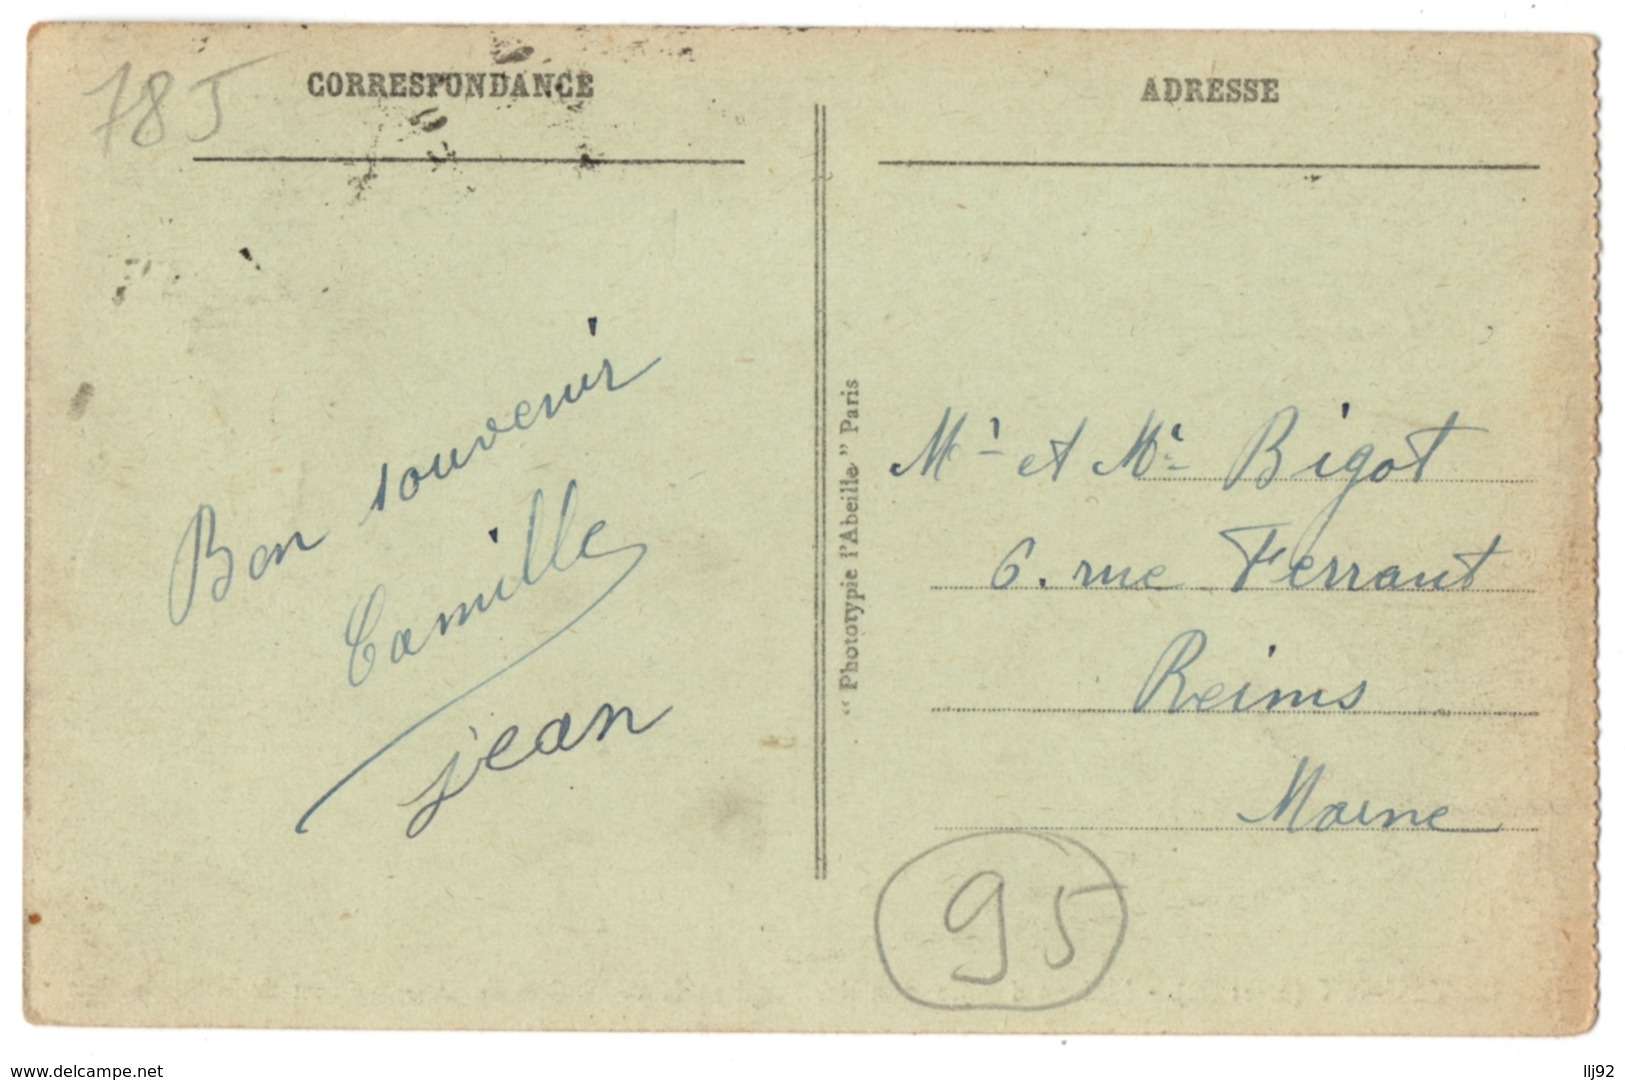 78 J
CORRESPONDANCE
ADRESSE
Bon souvenir
Camille
jean
" Phototypie l'Abeille " Paris
Mr et Me Bigot
6. rue Ferrant
Reims
Marne
95
www.delcampe.net
llj92